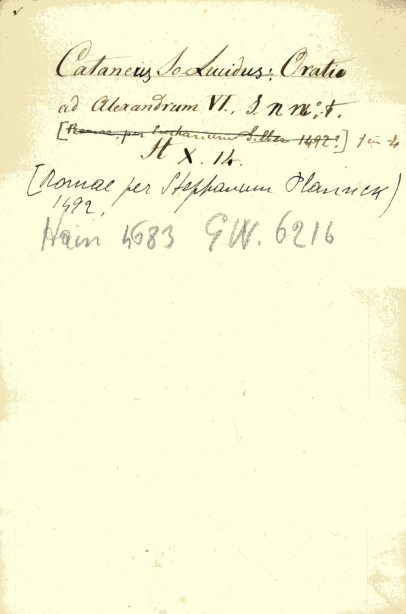 Cataneus Jo Lucidus: Oratio
ad Alexandrum VI., S. n n et t.
[Romae per Eucharium Silber 1492?] 1 in 4
St X. 14.
[Romae per Stephanum Plannck)
1492.
Hain 4683 GW. 6216